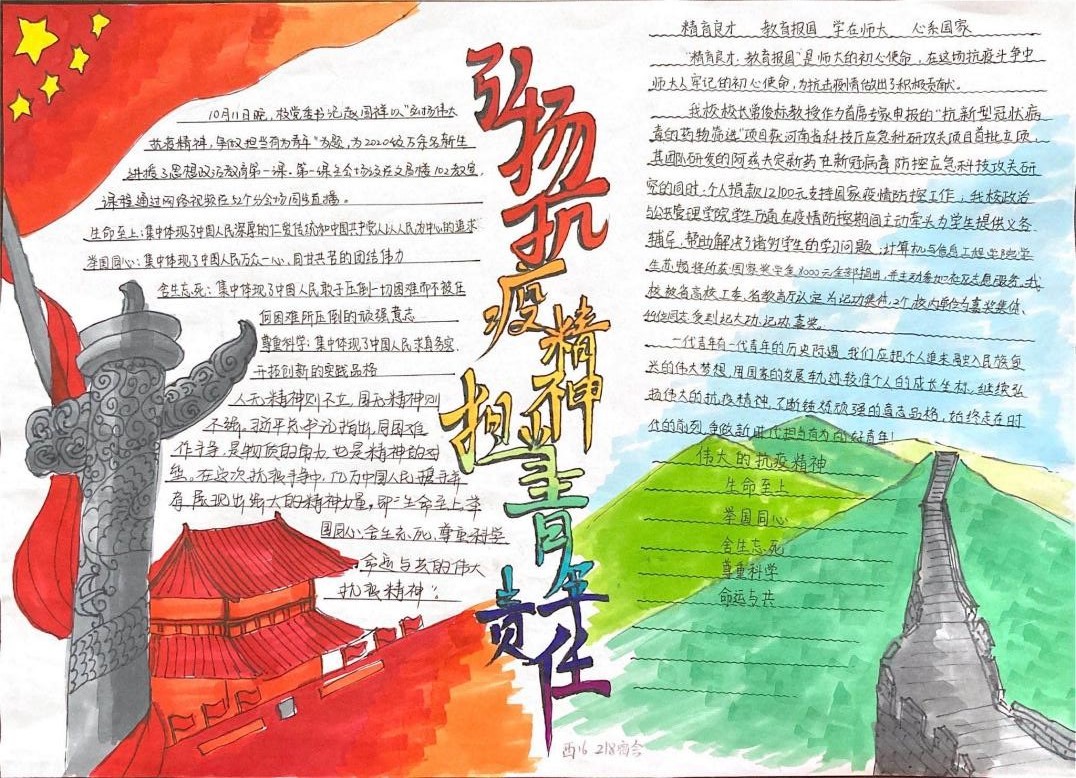 弘扬抗疫精神
担当青年责任
10月11日晚,校党委书记赵国祥以“弘扬伟大
抗疫精神,争做担当有为青年”为题,为2020级万余名新生
讲授了思想政治教育第一课。第一课主会场设在文昌楼102教室,
课程通过网络视频在52个分会场同步直播。
生命至上:集中体现了中国人民深厚的仁爱传统和中国共产党人以人民为中心的追求
举国同心:集中体现了中国人民万众一心、同甘共苦的团结伟力
舍生忘死:集中体现了中国人民敢于压倒一切困难而不被任
何困难所压倒的顽强意志
尊重科学:集中体现了中国人民求真务实、
开拓创新的实践品格
人无精神则不立,国无精神则
不强。习近平总书记指出,同困难
作斗争,是物质的角力,也是精神的对
垒。在这次抗疫斗争中,亿万中国人民
展现出强大的精神力量,即“生命至上、举
国同心、舍生忘死、尊重科学
、命运与共的伟大
抗疫精神”。
精育良才 教育报国 学在师大 心系国家
“精育良才,教育报国”是师大的初心使命,在这场抗疫斗争中
师大人牢记的初心使命,为抗击疫情做出了积极贡献。
我校校长常俊标教授作为首席专家申报的“抗新型冠状病
毒的药物筛选”项目获河南省科技厅应急科研攻关项目首批立项,
其团队研发的阿兹夫定新药在新冠病毒防控应急科技攻关研
究的同时,个人捐款12100元支持国家疫情防控工作,我校政治
与公共管理学院学生万南在疫情防控期间主动牵头为学生提供义务
辅导,帮助解决了诸多学生的学习问题,计算机与信息工程学院学
生苏畅将所获国家奖学金8000元全部捐出,并主动参加社区志愿服务。我
校被省高校工委、省教育厅认定为记功集体,2个校内单位为嘉奖集体、
位同志受到记大功、记功、嘉奖。
一代青年有一代青年的历史际遇,我们应把个人追求融入民族复
兴的伟大梦想,用国家的发展轨迹校准个人的成长坐标,继续弘
扬伟大的抗疫精神,不断锤炼顽强的意志品格,始终走在时
代的前列,争做新时代担当有为的好青年!
伟大的抗疫精神
生命至上
举国同心
舍生忘死
尊重科学
命运与共
西 218宿舍